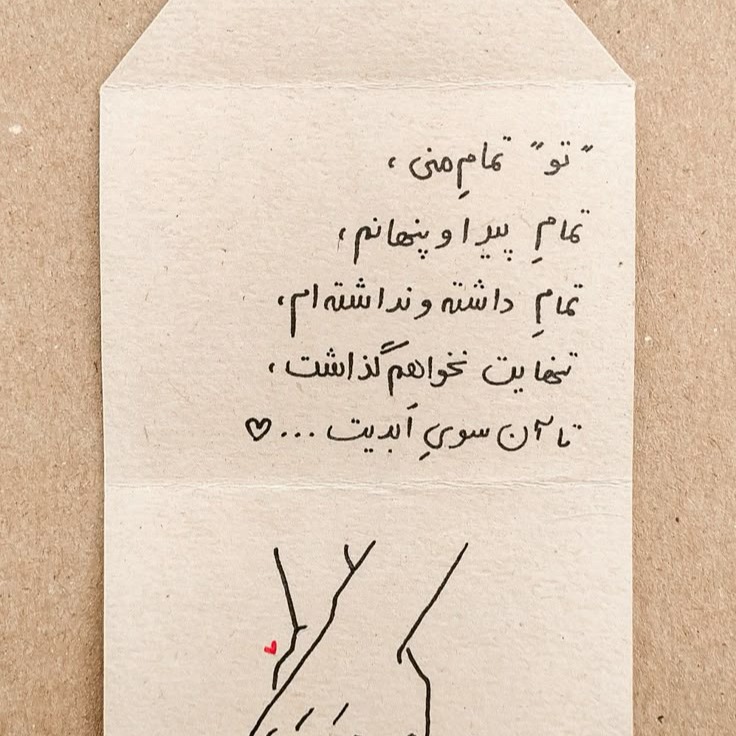 "تو" تمامِ منی ،
تمامِ پیدا و پنهانم ،
تمامِ داشته و نداشته ام ،
تنهایت نخواهم گذاشت ،
تا آن سویِ اَبدیت ... ♡